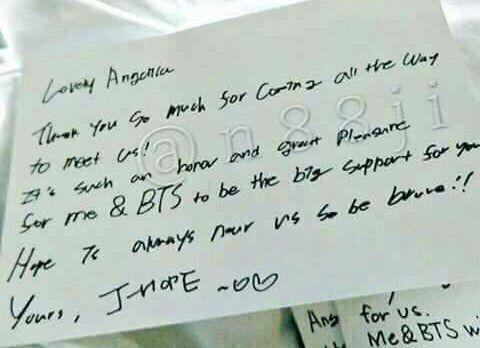 Lovely Angelica
Thank you so much for coming all the way
to meet us!
It's such an honor and great pleasure
for me & BTS to be the big support for you
Hope is always near us so be brave!!
Yours, J-HOPE ~♡♡
@n88ji
Ang
for us.
Me&BTS wi